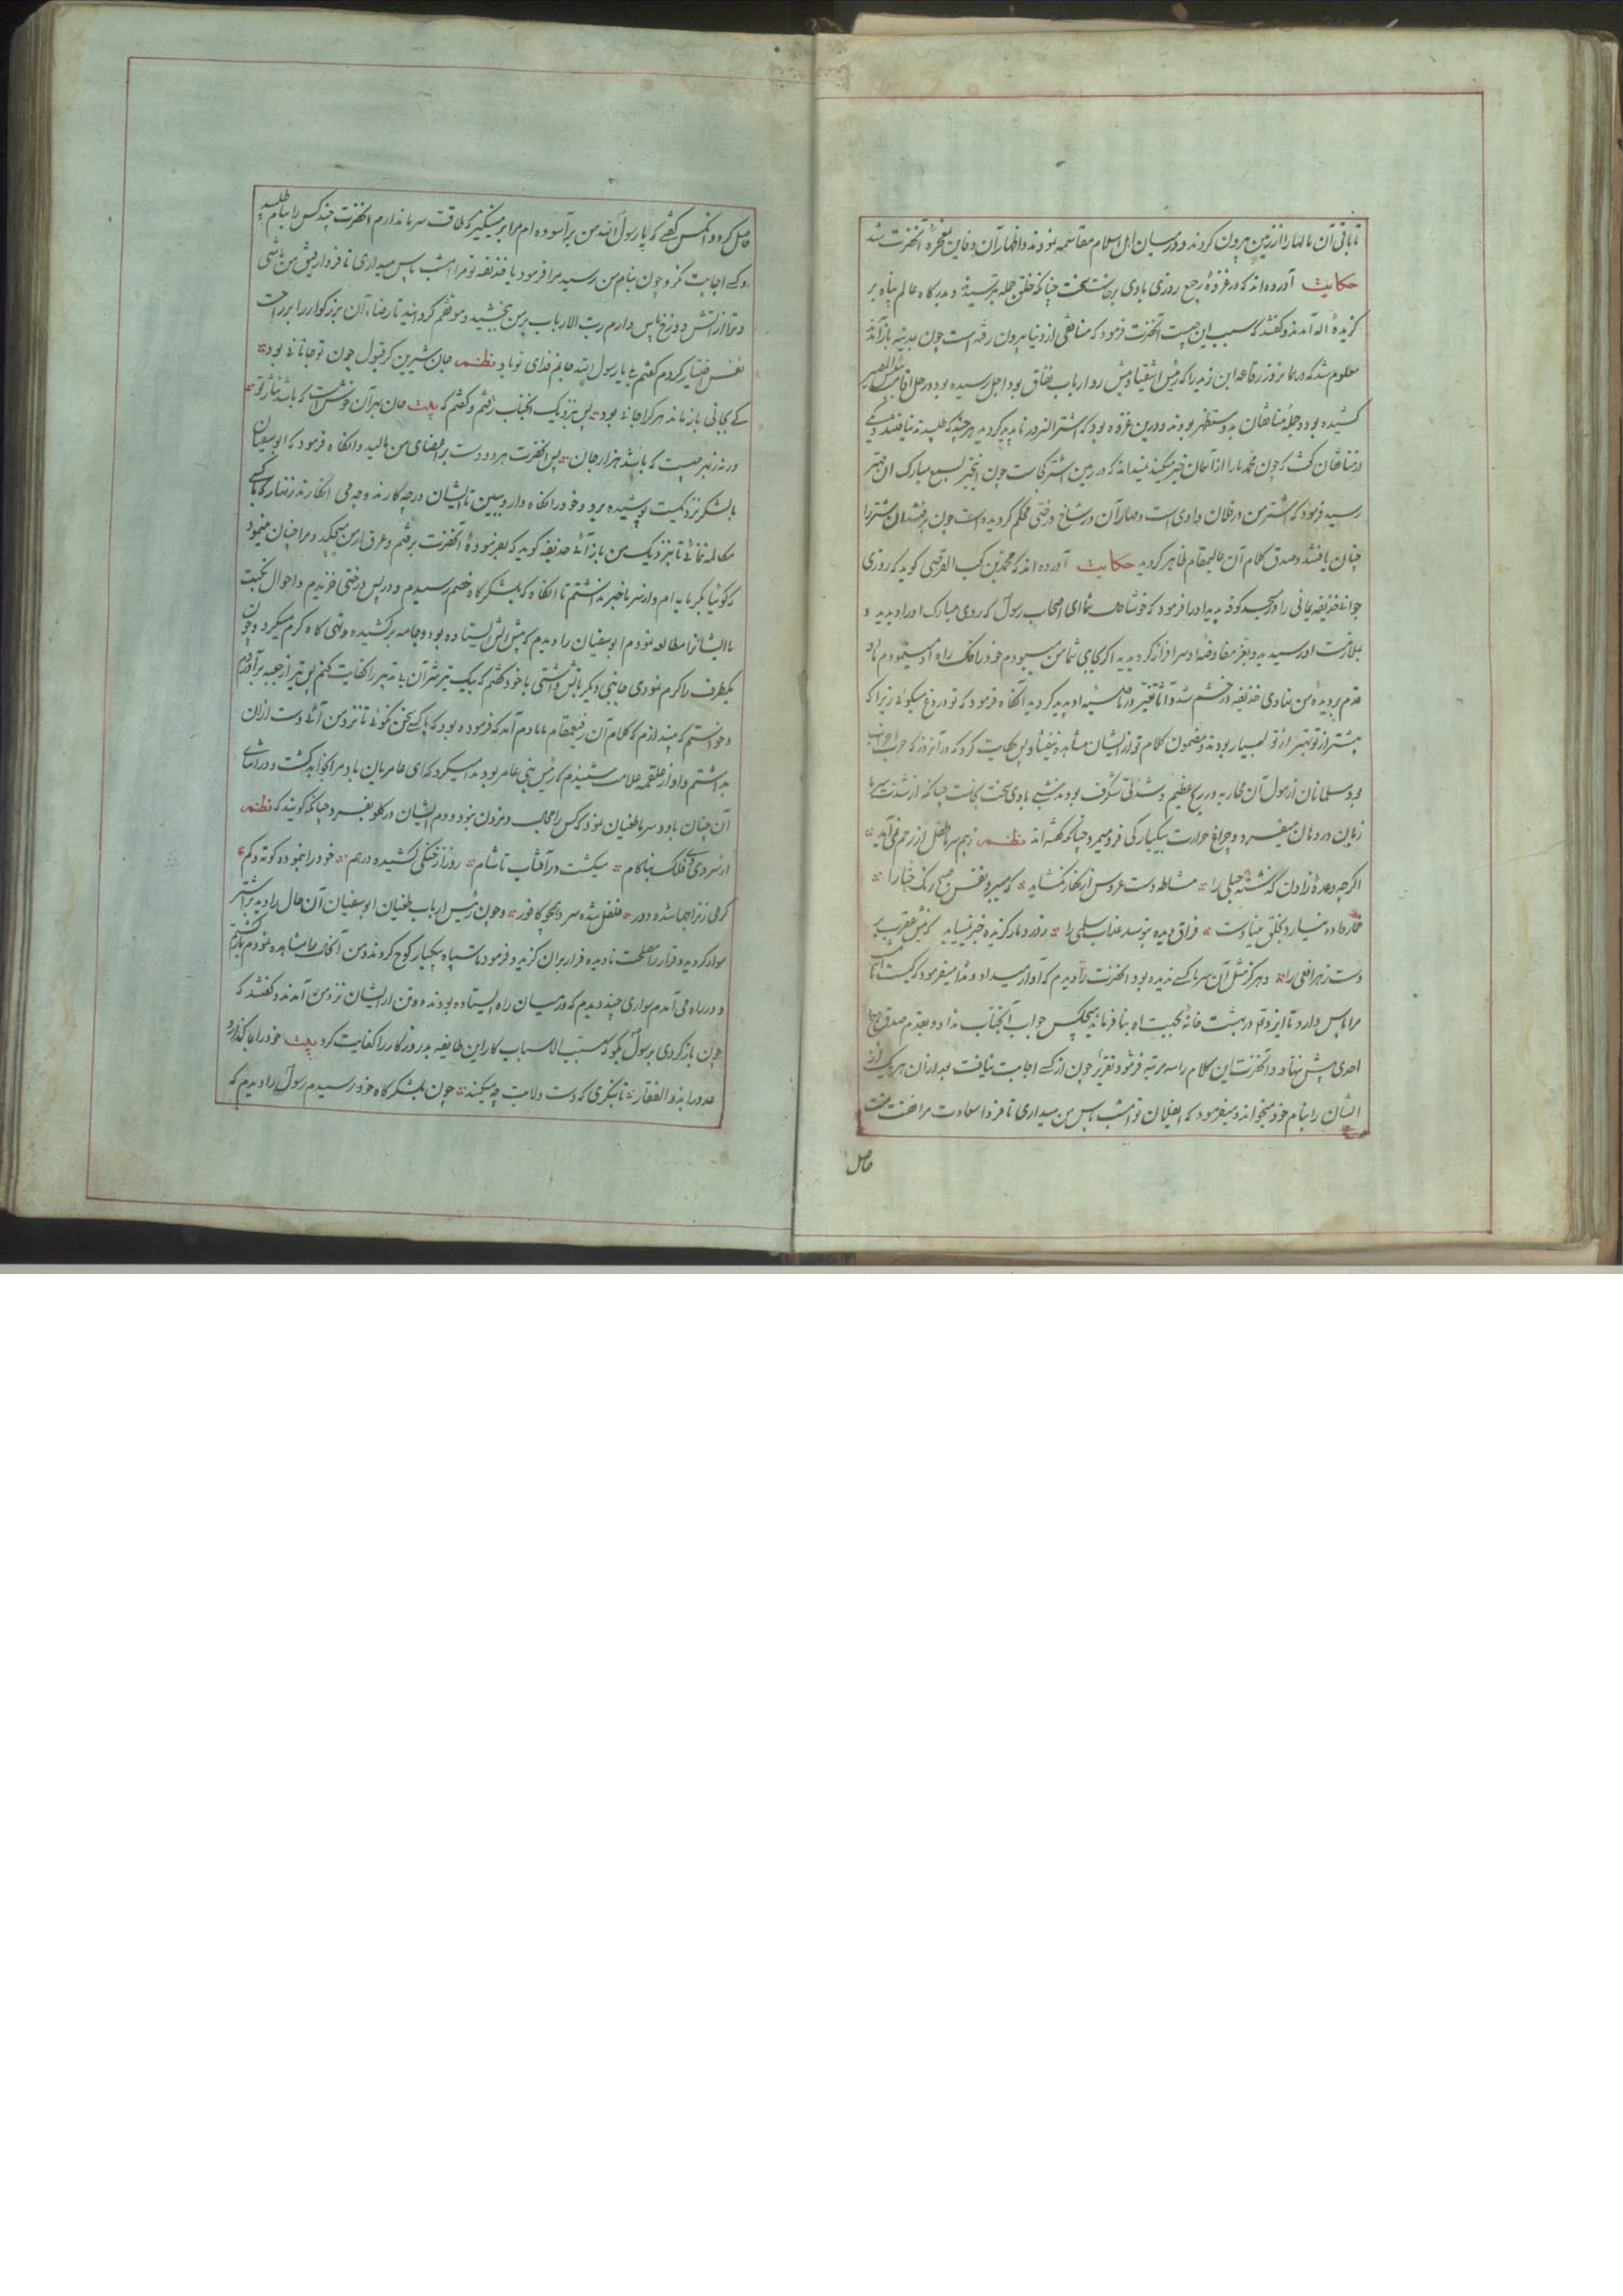 تا باقی آن مالها را از زمین بیرون کردند و در میان اهل اسلام مقاسمه نمودند و اظهار آن دفاین معجزهٔ آنحضرت شد
حکایت آورده‌اند که در غزوهٔ رجیع روزی بادی برخاست سخت چنانکه خلق جمله بترسیدند و بدرگاه عالم پناه بر
گزیدهٔ اله آمدند و گفتند که سبب این چیست آنحضرت فرمود که منافقی از دنیا بیرون رفته است چون بمدینه باز آمدند
معلوم شد که در همان روز رفاعه ابن زید را که رئیس اشقیا و پیش رو ارباب نفاق بود اجل رسیده بود و رحل اقامت
کشیده بود و جملهٔ منافقان بدو مستظهر بودند و درین غزوه بود که اشتر السرور ناپدید گردید هرچند که طلبیدند نیافتند و یکی
از منافقان گفت که چون محمد ما را از آسمان خبر میکند نمیداند که در زمین اشتر کجاست چون این خبر بسمع مبارک آن مهتر
رسید فرمود که اشتر من در فلان وادی است و مهار آن در شاخ درختی محکم گردیده است چون برفتند آن شتر را
چنان یافتند و صدق کلام آن عالیمقام ظاهر گردید حکایت آورده‌اند که محمد بن کعب القرظی گوید که روزی
جوانی حذیفه یمانی را در مسجد کوفه بدید او را فرمود که خوشا حال شما ای اصحاب رسول که روی مبارک او را دیدید و
بملازمت او رسیدید و بعز مفاوضه او سرافراز گردیدید اگر بجای شما من میبودم خود را خاک راه او مینمودم تا او
قدم بر دیدهٔ من نهادی حذیفه در خشم شد و آثار تغیر در ناصیه او پدید گردید آنگاه فرمود که تو دروغ میگوئی زیرا که
پیشتر از تو بهتر از تو بسیار بودند و مضمون کلام تو از ایشان مشاهده نیفتاد پس حکایت کرد که در آنروز که حرب احزاب
بود و مسلمانان از هول آن محاربه در رنج عظیم و شدتی شگرف بودند شبی بادی سخت بخاست چنانکه از شدت سرما
زبان در دهان میفسرد و چراغ حرارت بیکبارگی فرو میمرد چنانکه گفته‌اند نظم ز بیم سرما طفل از رحم نمی‌آید
اگرچه وعدهٔ زادن گذشته حبلی را مشاطه دست عروس از نگار نگشاید که میبرد نفس صبح رنگ حنا را
دست زهر افعی را و هرگز مثل آن سرما کسی ندیده بود آنحضرت را دیدم که آواز میداد و ندا میفرمود که کیست که امشب
مرا پاس دارد تا ایزد تعالی در بهشت خانهٔ بجهت او بنا فرماید هیچکس جواب آنجناب نداد و بقدم صدق
احدی پیش ننهاد و آنحضرت این کلام را سه مرتبه فرمود چون از کسی اجابت نیافت بعد از آن هر یک از
ایشان را بنام خود میخواند و میفرمود که ای فلان تو امشب پاس من میداری تا فردا سعادت مرافقت من
حاصل
حاصل کرد و آنکس گفتی که یا رسول الله من برآسوده‌ام مرا بر مینگیز که طاقت سرما ندارم آنحضرت چند کس را بنام طلبید
و کسی اجابت نکرد چون بنام من رسید مرا فرمود یا حذیفه تو مرا امشب پاس میداری تا فردا رفیق من باشی
و ترا از آتش دوزخ پاس دارم رب الارباب بر من بخشید و موفقم گردانید تا رضاء آن بزرگوار را بر راحت
نفس اختیار کردم گفتم بلی یا رسول الله جانم فدای تو باد نظم جان شیرین گر قبول چون تو جانانی بود
کی بجانی باز ماند هر کرا جانی بود پس بنزدیک آنجناب رفتم و گفتم که بیت جان بهر آن خوشست که باشد نثار تو
ورنه ز بهر چیست که باشد هزار جان پس آنحضرت هر دو دست بر اعضای من مالید و آنگاه فرمود که ابوسفیان
با لشکر نزدیکست پوشیده برو و خود را نگاه دار و ببین تا ایشان در چه کارند و چه می انگارند زنهار که با کسی
مکالمه ننمائی تا بنزدیک من باز آئی حذیفه گوید که بفرمودهٔ آنحضرت برفتم و عرق از من میچکید و مرا چنان مینمود
که گوئیا بگرمابه‌ام و از سرما خبر نداشتم تا آنگاه که بلشکرگاه خصم رسیدم و در پس درختی خزیدم و احوال نکبت
مآل ایشانرا مطالعه نمودم ابوسفیان را دیدم که پیش آتش ایستاده بود و جامه برکشیده و تهی گاه گرم میکرد و چون
یکطرف را گرم نمودی جانبی دیگر بآتش داشتی با خود گفتم که بیک تیر شر آن بی تدبیر را کفایت کنم پس تیر از جعبه برآوردم
و خواستم که بیندازم که کلام آن رفیعمقام بیادم آمد که فرموده بود که با کسی سخن نگوئی تا نزد من آئی دست از آن
بداشتم و آواز علقمه علامت شنیدم که رئیس بنی عامر بود ندا میکرد که ای عامریان باد مرا بخواهد کشت و در اثنای
آن چنان باد و سرما طغیان نمود که کس را مجال دم زدن نبود و دم ایشان در گلو بفسرد چنانکه گویند که نظم
از سردی دی فلک بناکام میگشت در آفتاب تا شام روز از خنکی کشیده در هم خود را بنموده کوته و کم
گرمی ز مزاجها شده دور فلفل شده سرد همچو کافور و چون رئیس ارباب طغیان ابوسفیان آن حال را دید بر اشتر
سوار گردید و قرار را مصلحت نادیده فرار بر آن گزید و فرمود تا سپاه بیکبار کوچ کردند و من آنحال را مشاهده نمودم باز گشتم
و در راه می آمدم سواری چند دیدم که در میان راه ایستاده بودند دو تن از ایشان نزد من آمدند و گفتند که
چون باز گردی برسول بگو که مسبب الاسباب کار این طایفه بد روزگار را کفایت کرد بیت خود را بما گذار و
عدو را بذو الفقار تا بنگری که دست ولایت چه میکند چون بلشکرگاه خود رسیدم رسول را دیدم که